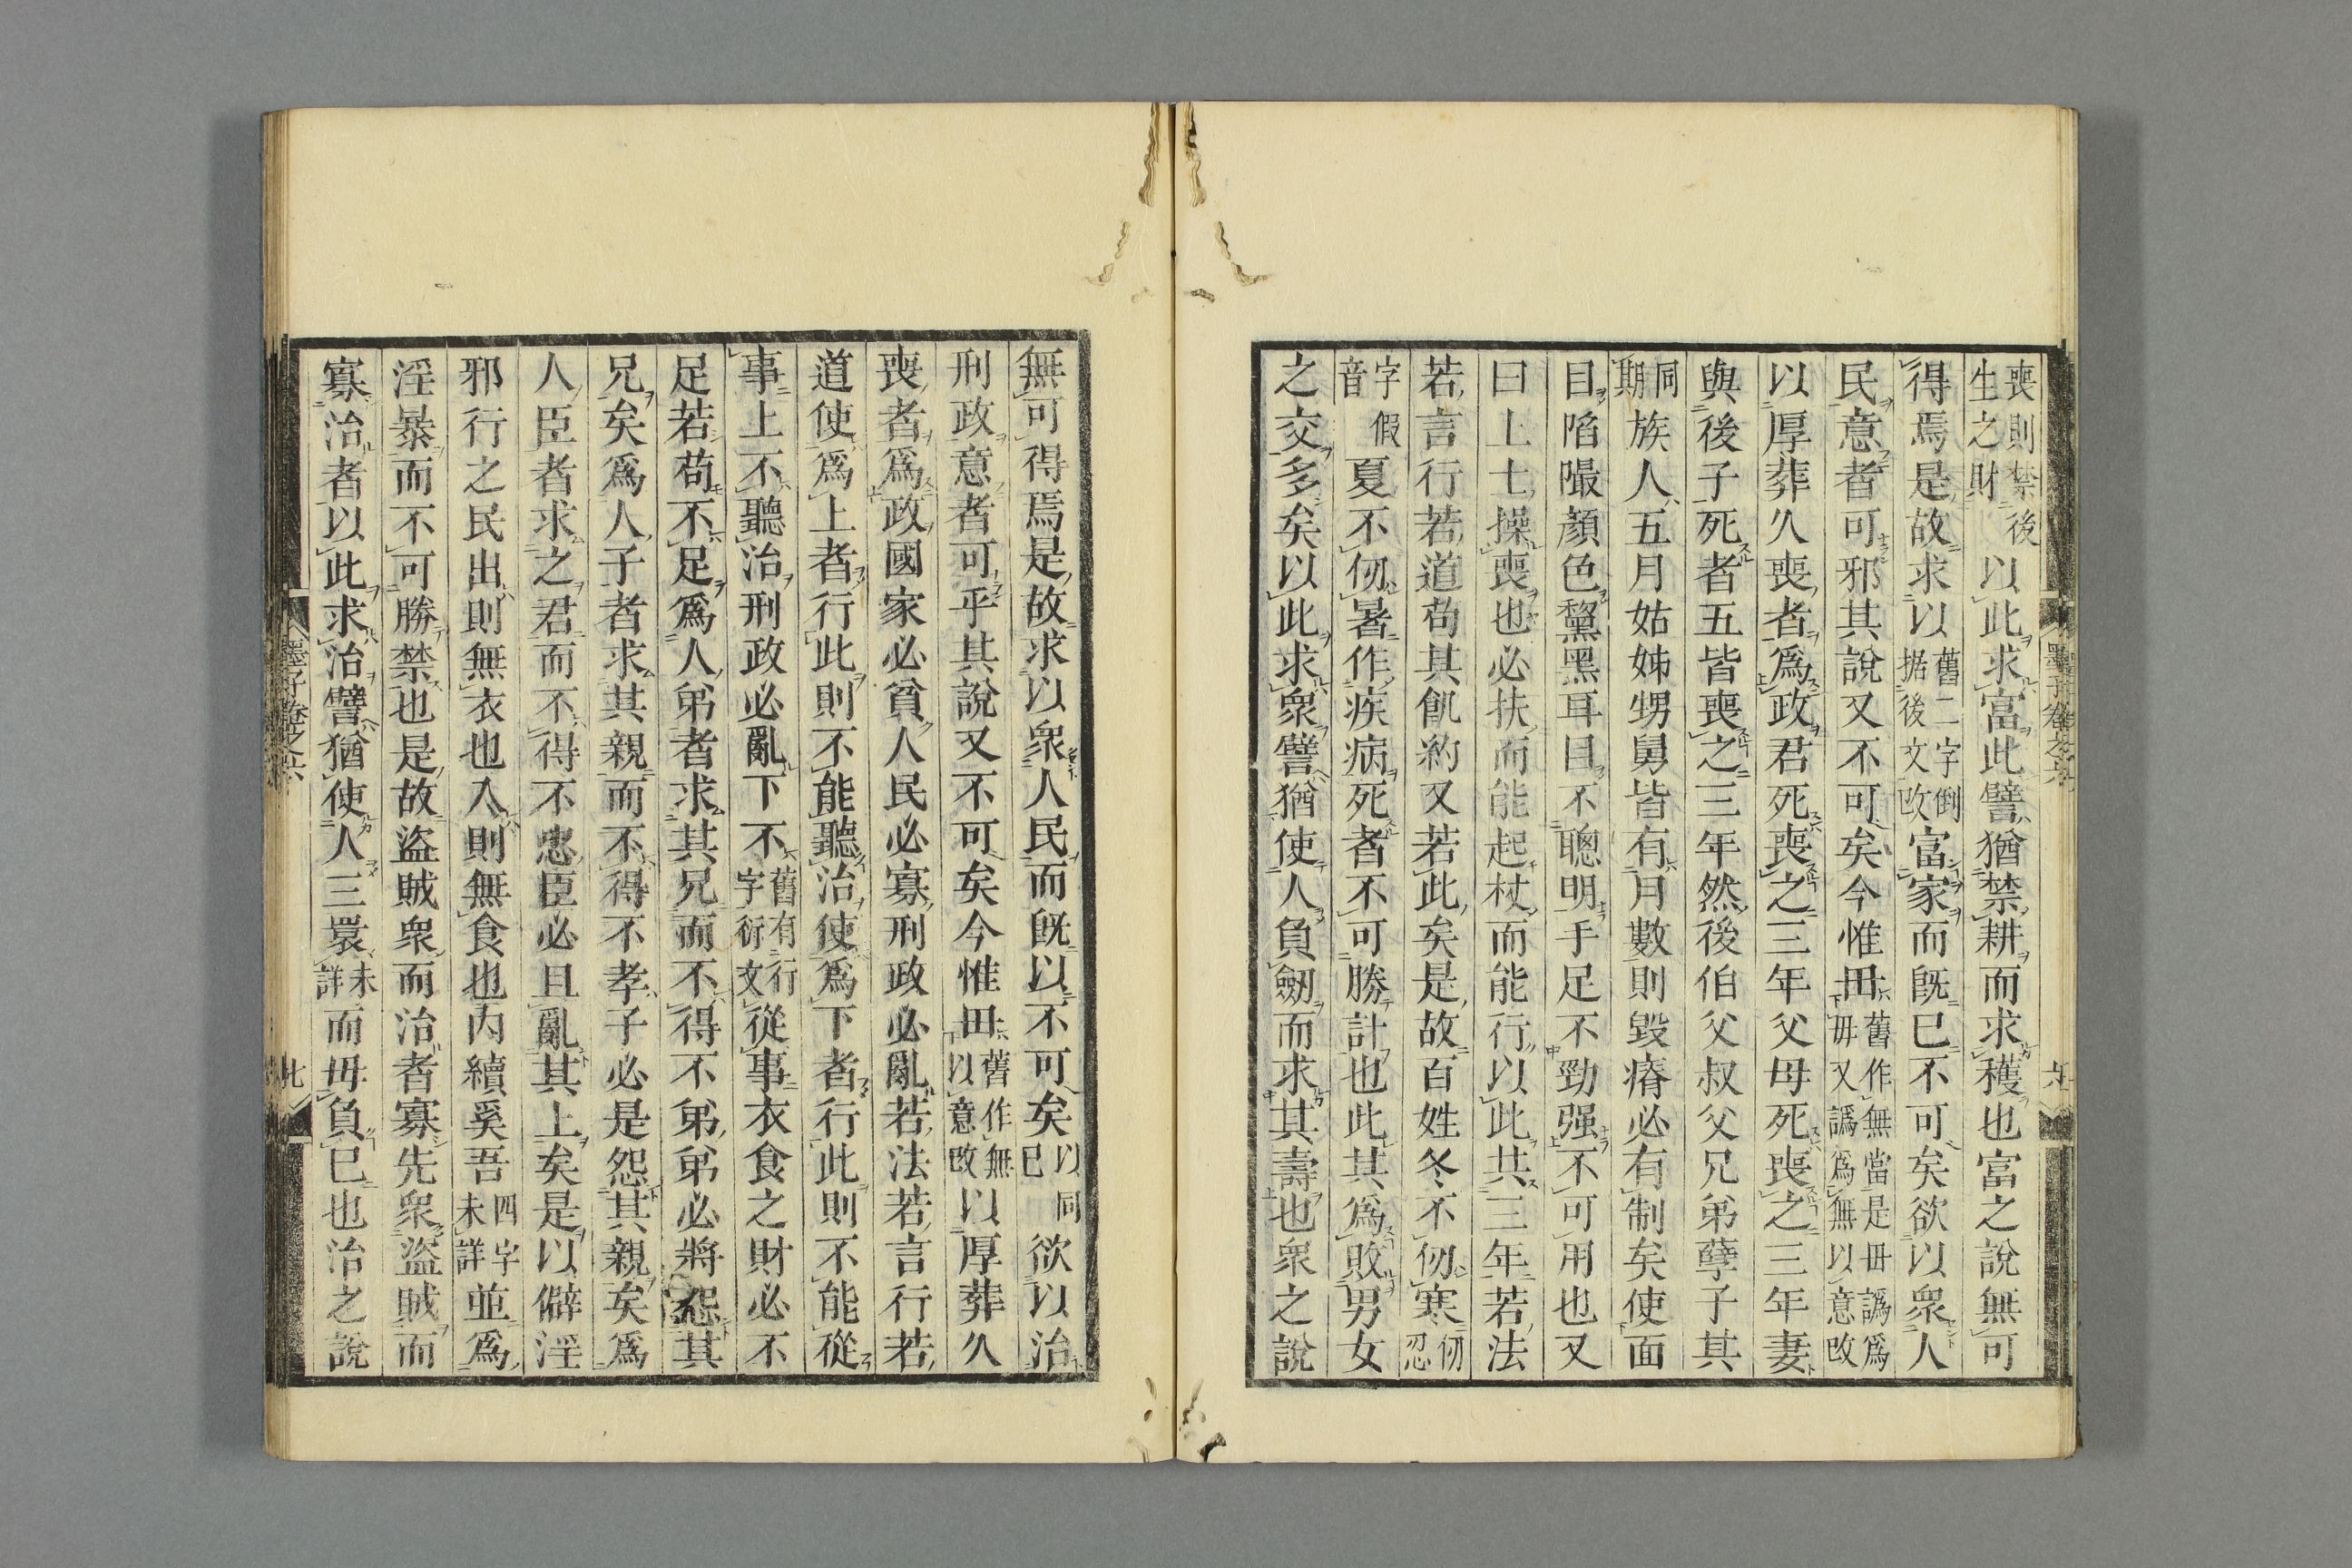 喪則禁後生之財以此求富此譬猶禁耕而求穫也富之說無可
得焉是故求以舊二字倒据後文改富家而旣已不可矣欲以衆人
民意者可邪其說又不可矣今惟毌舊作無當是毌譌爲毋又譌爲無以意改
以厚葬久喪者爲政君死喪之三年父母死喪之三年妻
與後子死者五皆喪之三年然後伯父叔父兄弟孽子其
同期族人五月姑姊甥舅皆有月數則毀瘠必有制矣使面
目陷㗖顏色黧黑耳目不聰明手足不勁强不可用也又
曰上士操喪也必扶而能起杖而能行以此共三年若法
若言行若道苟其飢約又若此矣是故百姓冬不仞寒仞忍
字假音夏不仞暑作疾病死者不可勝計也此其爲敗男女
之交多矣以此求衆譬猶使人負劒而求其壽也衆之說
墨子卷之六
無可得焉是故求以衆人民而旣以不可矣以同已欲以治
刑政意者可乎其說又不可矣今惟毌舊作無以意改以厚葬久
喪者爲政國家必貧人民必寡刑政必亂若法若言行若
道使爲上者行此則不能聽治使爲下者行此則不能從
事上不聽治刑政必亂下不舊有行字衍文從事衣食之財必不
足若苟不足爲人弟者求其兄而不得不弟弟必將怨其
兄矣爲人子者求其親而不得不孝子必是怨其親矣爲
人臣者求之君而不得不忠臣必且亂其上矣是以僻淫
邪行之民出則無衣也入則無食也內續奚吾四字未詳並爲
淫暴而不可勝禁也是故盜賊衆而治者寡先衆盜賊而
寡治者以此求治譬猶使人三睘未詳而毋負已也治之說
墨子卷之六